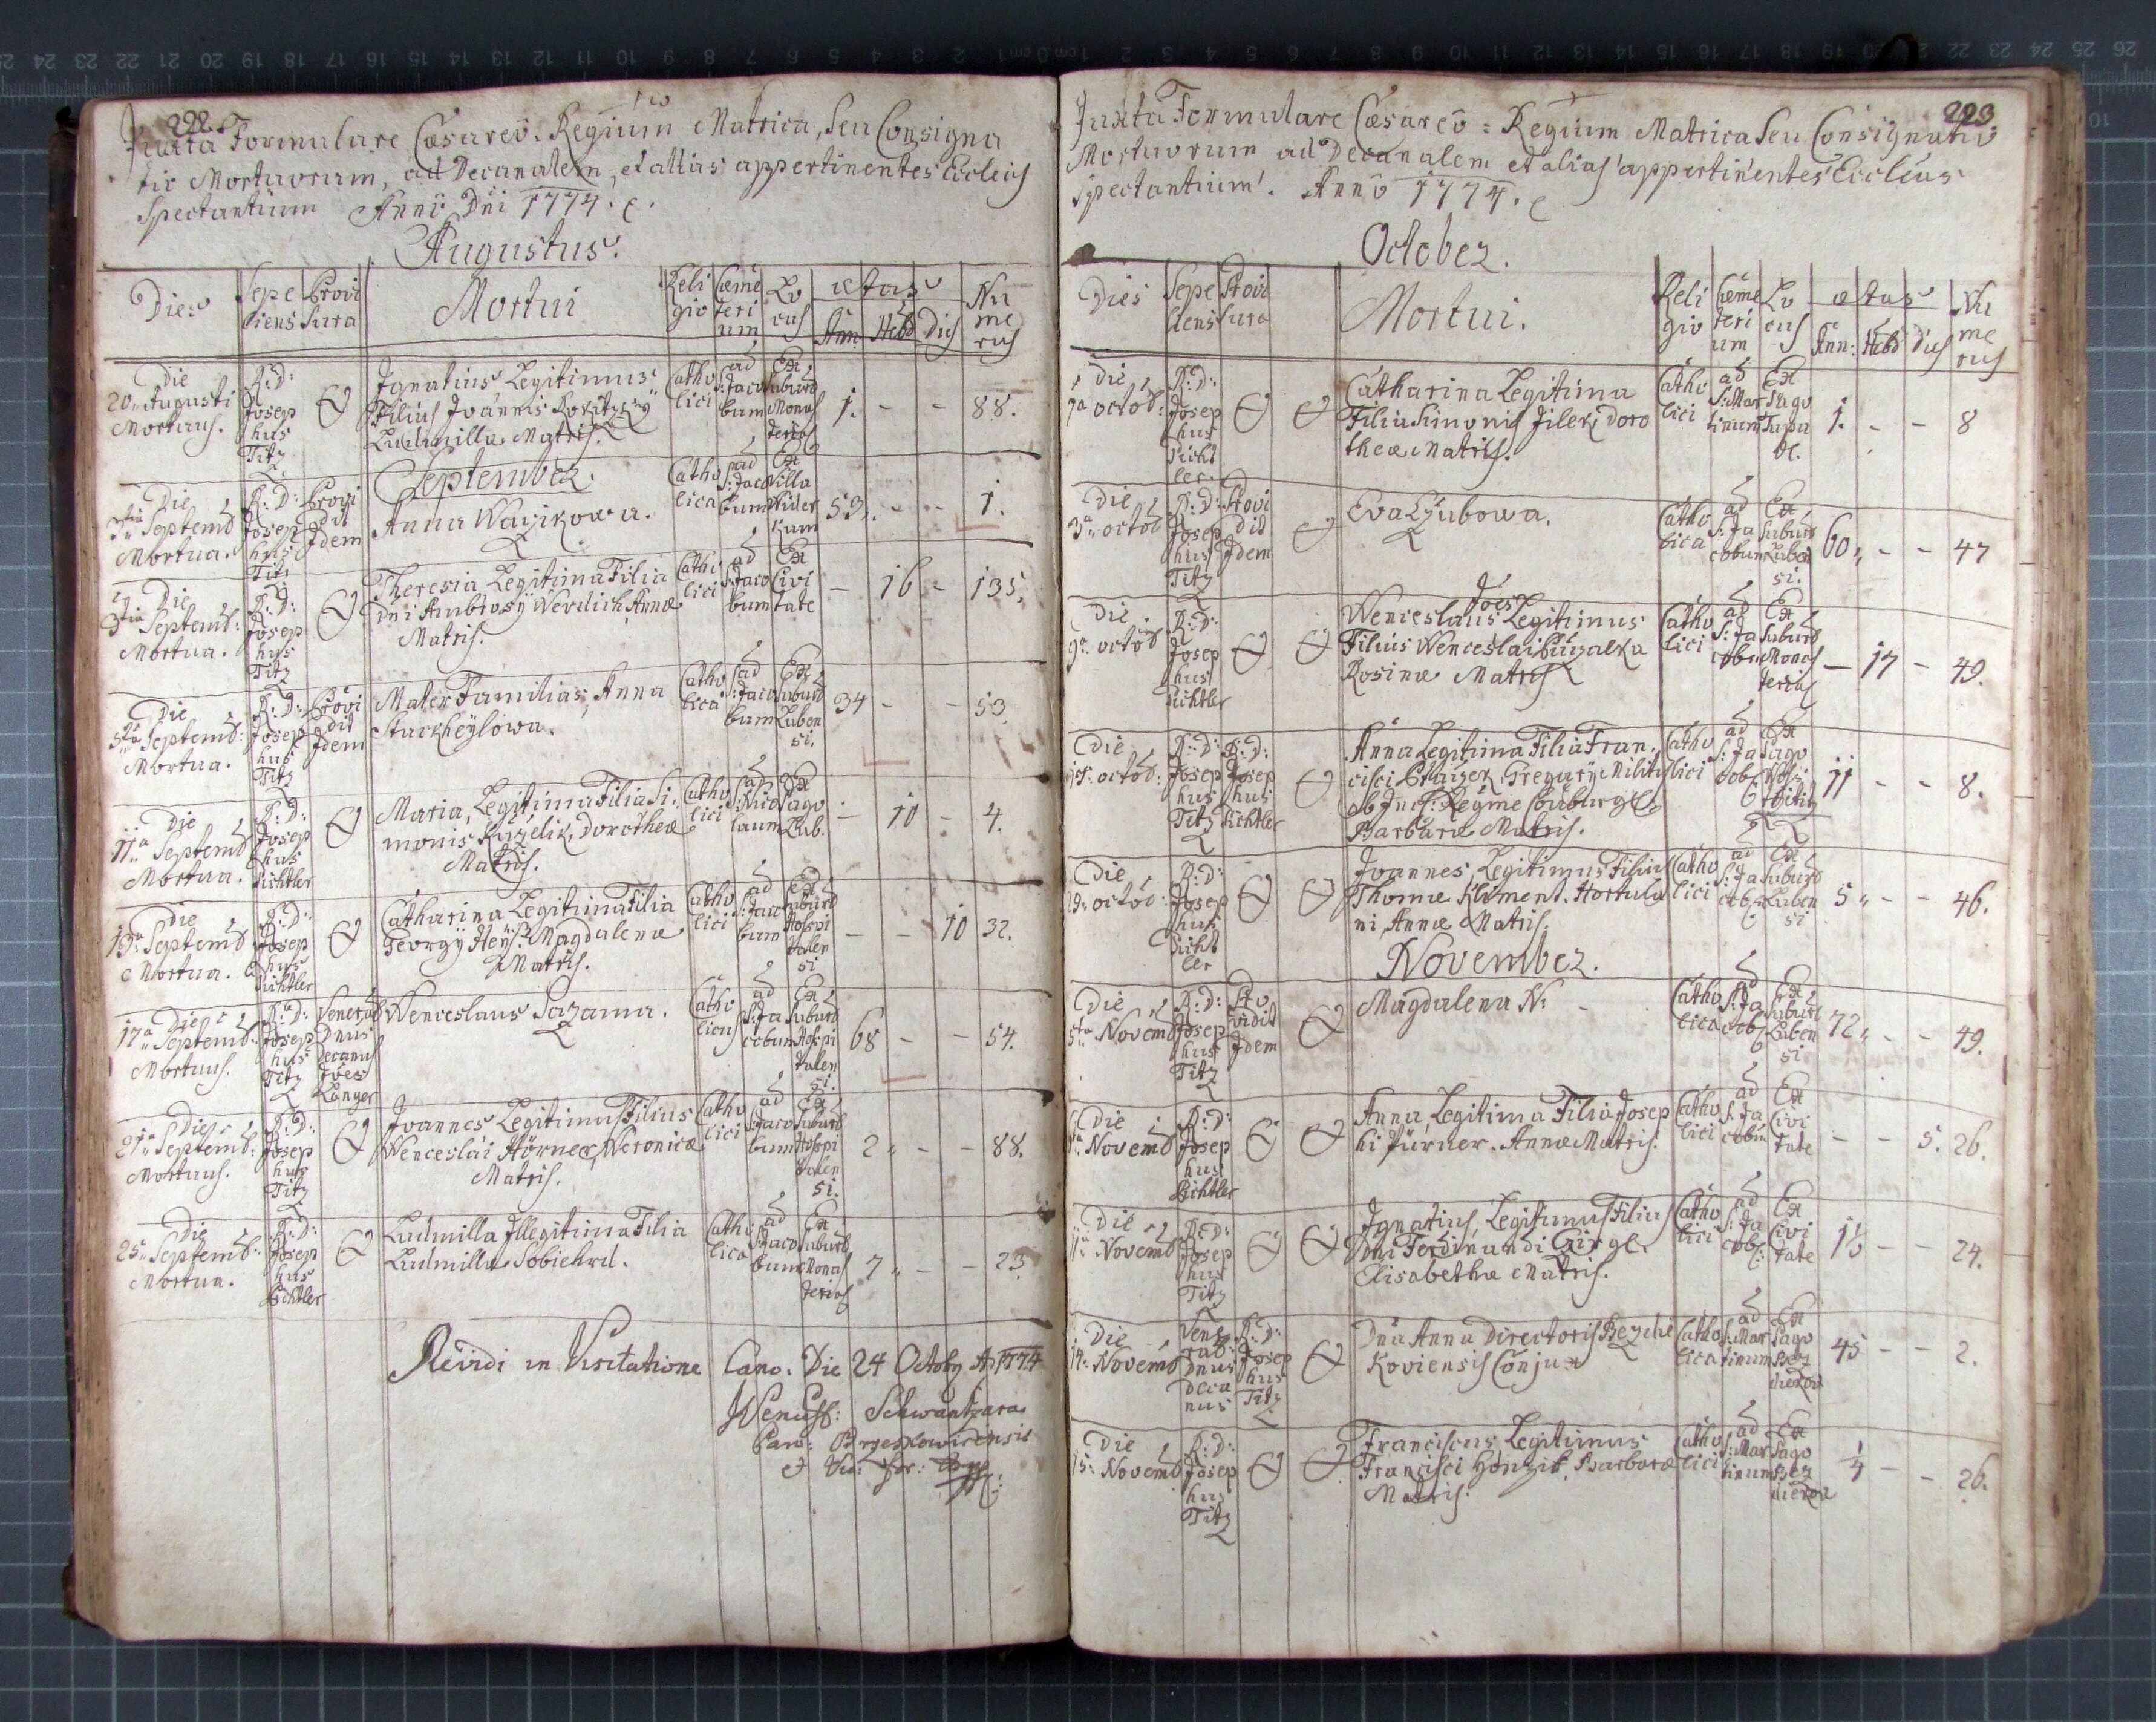 222.
Juxta Formulare Cæsareo-Regium Matrica, Seu Consigna
tio Mortuorum, ad Decanalem, et alias appertinentes Eccleis
Spectantium Anno Dni 1774.
Augustus.
Dies
Sepe
liens
Provi
sura
Mortui
Reli
gio
Cæme
teri
um
Lo
cus
ætas
Ann:
Hebd
Dies
Nu
me
rus
Die
20 Augusti
Mortuus.
R: D:
Josep
hus
Titz
Ignatius Legitimus
Filius Joannis
Ludmilla Matris.
Catho
lici
ad
S: Jaco
bum
Ex
Suburb
Monas
terios
1. - - 88.
September.
Die
3 Septemb
Mortua.
R: D:
Josep
hus
Titz
Provi
dit
Idem
Anna
Catho
lica
ad
S: Jaco
bum
Ex
Villa
59. - - 1.
Die
3tia Septemb:
Mortua.
R: D:
Josep
hus
Titz
Theresia Legitima Filia
Dni Ambrosÿ Werdich, Annæ
Matris.
Catho
lici
ad
S: Jaco
bum
Ex
Civi
tate
- 16 - 135.
Die
5ta Septemb:
Mortua.
R: D:
Josep
hus
Titz
Provi
dit
Idem
Mater Familias, Anna
Catho
lica
ad
S: Jaco
bum
Ex
Suburb
Luben
si.
34 - - 53.
Die
11a Septemb
Mortua.
R: D:
Josep
hus
Sichtler
Maria, Legitima Filia Si-
monis Kuzelik, Dorotheæ
Matris.
Catho
lici
ad
S: Nico
laum
Ex
Pago
Lub.
- 10 - 4.
Die
Septemb
Mortua.
R: D:
Josep
hus
Sichtler
Catharina Legitima Filia
Georgÿ Heÿs. Magdalenæ
Matris.
Catho
lici
ad
S: Jaco
bum
Ex
Suburb
Hospi
talen
si
- - 10 32.
Die
17a Septemb:
Mortuus.
R: D:
Josep
hus
Titz
Venerab
Dnus
Decanus
Joes
Langer
Wenceslaus Sazama.
Catho
licus
ad
S: Ja
cobum
Ex
Suburb
Hospi
talen
si.
68 - - 54.
Die
21a Septemb:
Mortuus.
R: D:
Josep
hus
Titz
Joannes Legitimus Filius
Wenceslai Hörner, Weronicæ
Matris.
Catho
lici
ad
S: Jaco
bum
Ex
Suburb
Hospi
talen
si.
2 - - 88.
Die
25 Septemb:
Mortua.
R: D:
Josep
hus
Sichtler
Ludmilla Illegitima Filia
Ludmilla
Catho
lica
ad
S: Jaco
bum
Ex
Suburb
Monas
terios
7 - - 23.
Revidi in Visitatione Cano. Die 24 Octobr A. 1774
Schwantzara
223
Juxta Formulare Cæsareo=Regium Matrica Seu Consignatio
Mortuorum ad Decanalem et alias appertinentes Eccleias
Spectantium. Anno 1774.
October.
Dies
Sepe
liens
Provi
sura
Mortui.
Reli
gio
Cæme
teri
um
Lo
cus
ætas
Ann:
Hebd
Dies
Nu
me
rus
Die
octob:
R: D:
Josep
hus
Sicht
ler.
Catharina Legitima
Filia Simonis Jilek, Doro
theæ Matris.
Catho
lici
ad
S: Mar
tinum
Ex
Pago
1. - - 8
Die
3a octob
R: D:
Josep
hus
Titz
Provi
dit
Idem
Eva
Catho
lica
ad
S: Ja
cobum
Ex
Suburb
Luben
si.
60 - - 47
Die
9a octob
R: D:
Josep
hus
Sichtler
Joes
Wenceslaus Legitimus
Filius Wenceslai
Rosinæ Matris
Catho
lici
ad
S: Ja
Ex
Suburb
Monas
terios
- 17 - 49.
Die
octob:
R: D:
Josep
hus
Titz
R: D:
Josep
hus
Sichtler
Anna Legitima Filia Fran-
cisci
Barbara Matris.
Catho
lici
ad
S: Ja
cob
Ex
Pago
11 - - 8.
Die
octob:
R: D:
Josep
hus
Sicht
ler
Joannes, Legitimus Filius
Thomæ Kliment. Hortula
ni, Annæ Matris.
Catho
lici
ad
S: Ja
Ex
Suburb
Luben
si
5 - - 46.
November.
Die
5ta Novemb
R: D:
Josep
hus
Titz
Pro
vidit
Idem
Magdalena N:
Catho
lica
ad
S: Ja
cob
Ex
Suburb
Luben
si
72 - - 49.
Die
Novemb
R: D:
Josep
hus
Sichtler
Anna, Legitima Filia Josep
hi Pürner. Annæ Matris.
Catho
lici
ad
S: Ja
cobum
Ex
Civi
tate
- - 5. 26.
Die
Novemb
R: D:
Josep
hus
Titz
Ignatius, Legitimus Filius
Dni Ferdinandi
Elisabethæ Matris.
Catho
lici
ad
S: Ja
cob:
Ex
Civi
tate
- - 24.
Die
14 Novemb
Vene
rab:
Dnus
Deca
nus
R: D:
Josep
hus
Titz
Dna Anna Directoris
koviensis Conjux
Catho
lica
ad
S: Mar
tinum
Ex
Pago
45 - - 2.
Die
15 Novemb
R: D:
Josep
hus
Titz
Franciscus Legitimus
Francisci Honzik, Barbaræ
Matris.
Catho
lici
ad
S: Mar
tinum
Ex
Pago
1/4 - - 26.